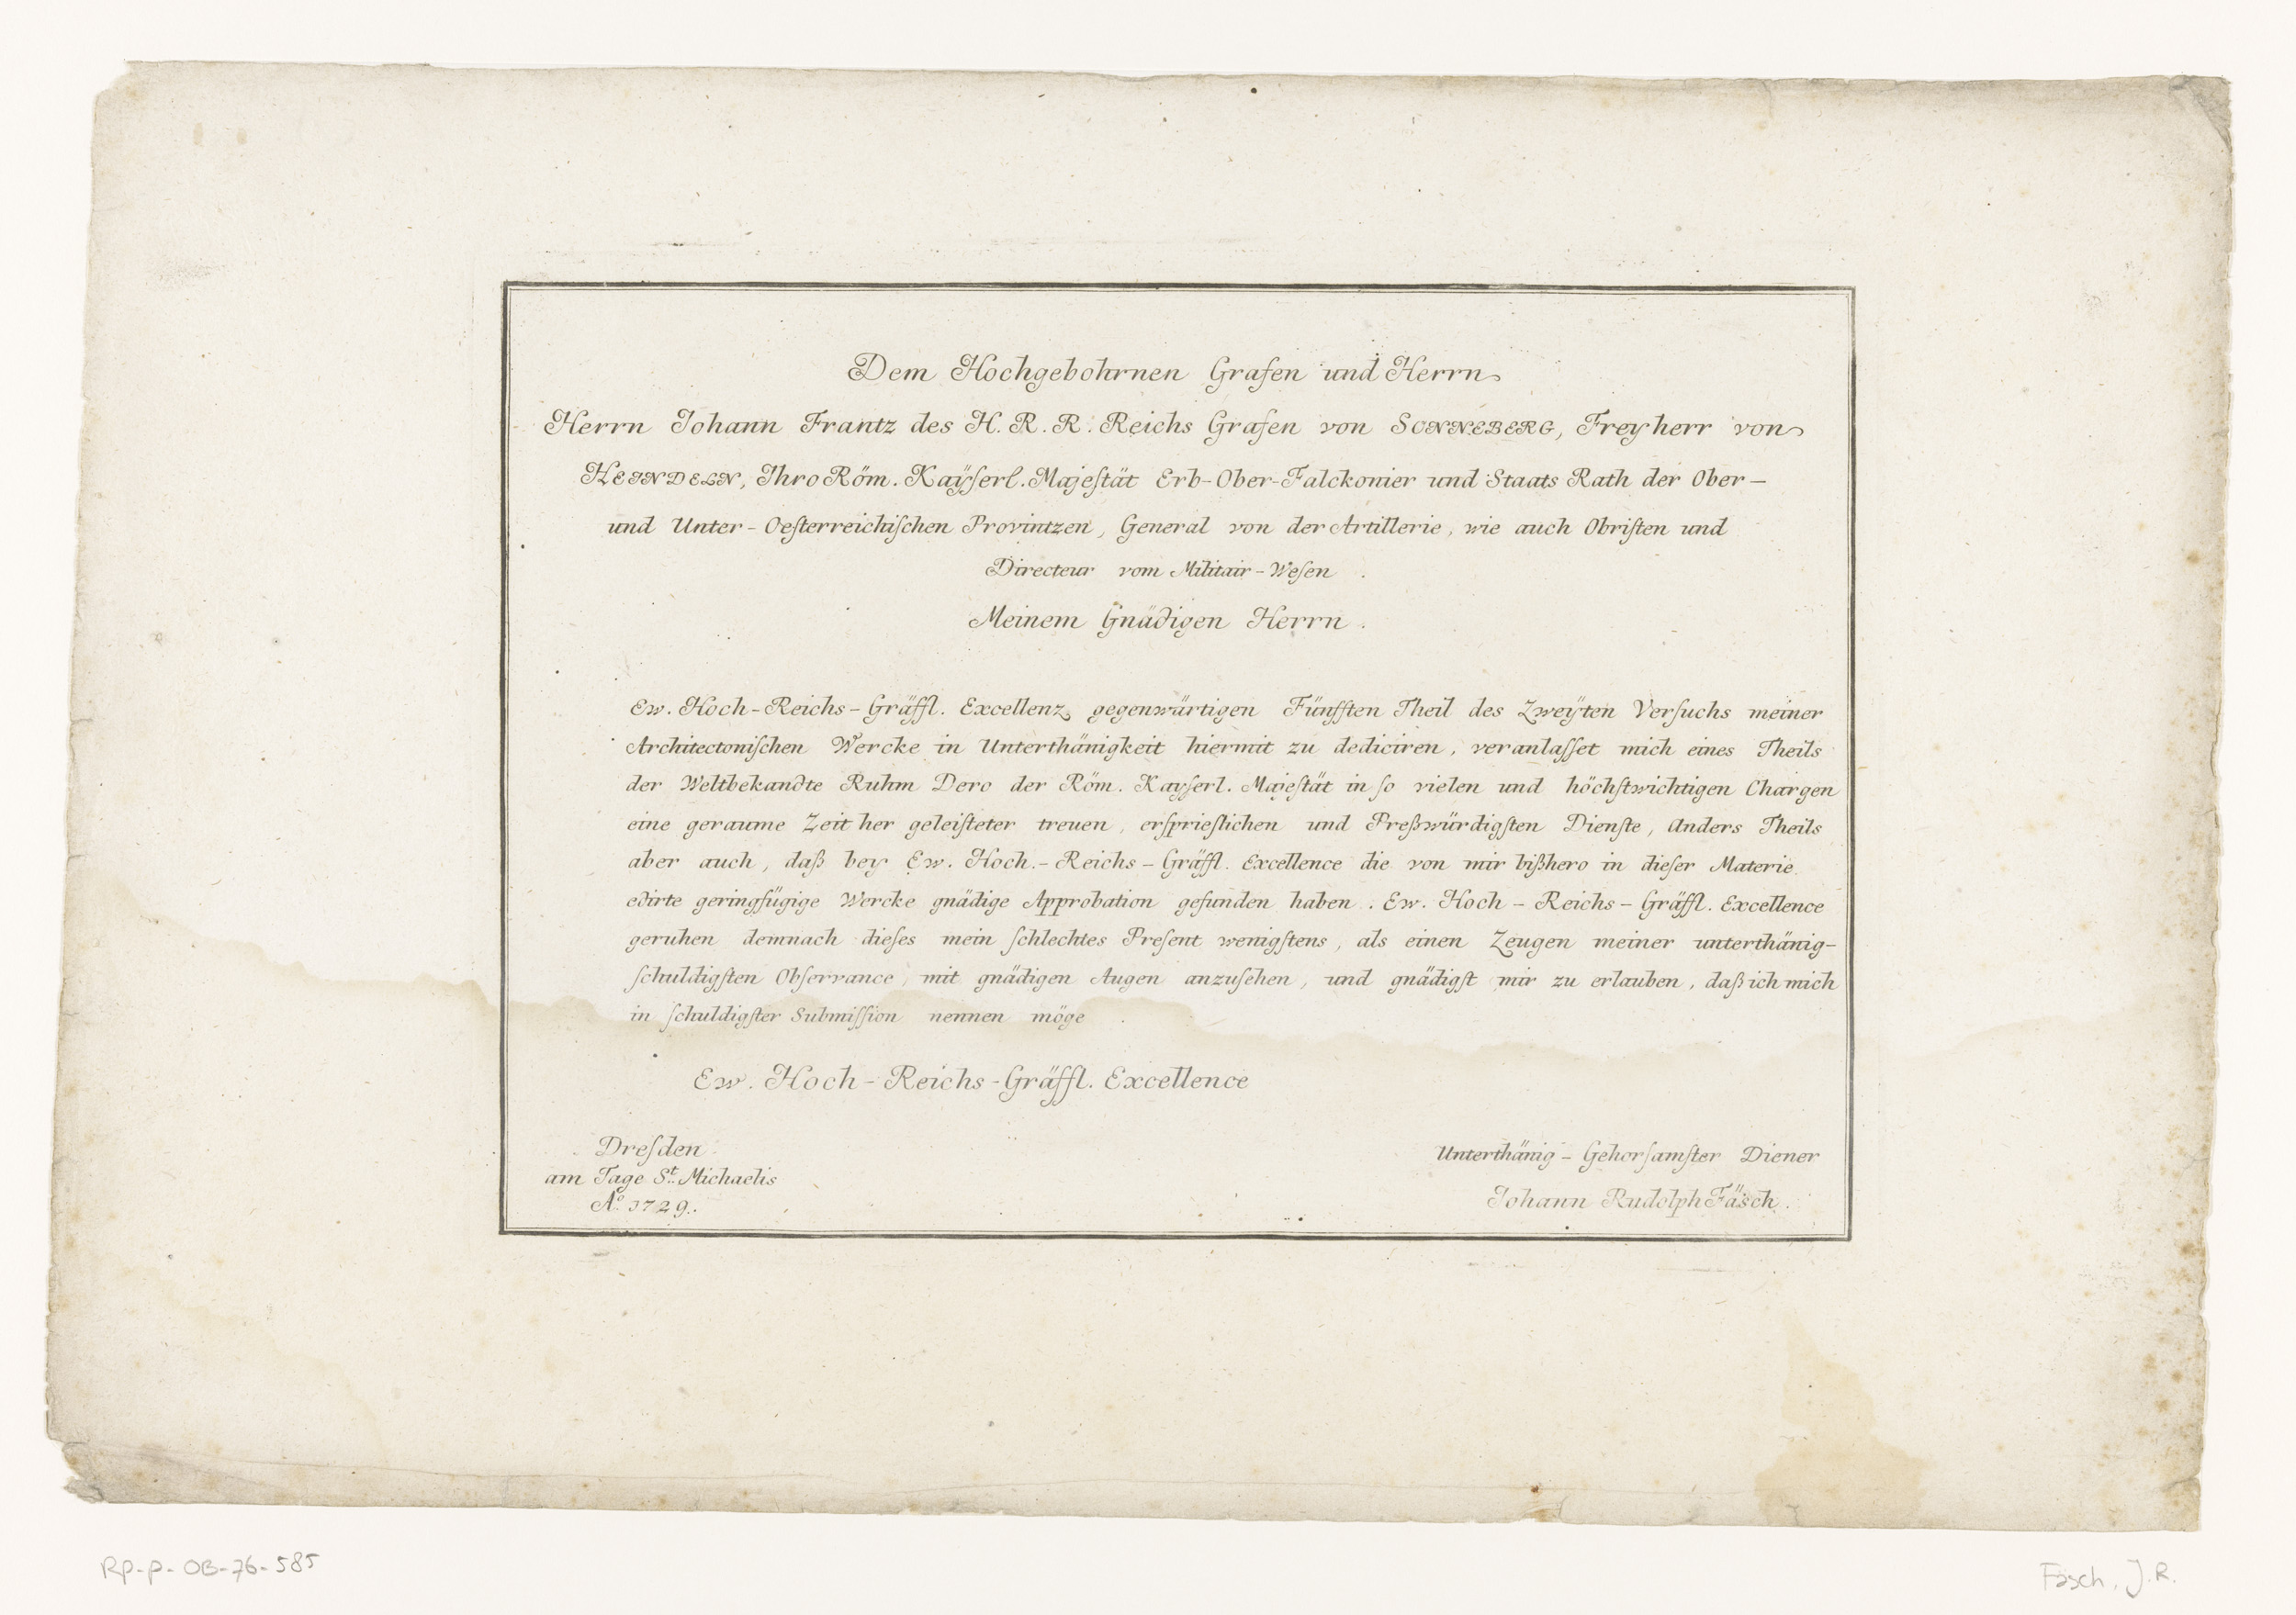 Dem Hochgebohrnen Grafen und Herrn
Herrn Johann Frantz des H. R. R. Reichs Grafen von SONNEBERG, Freyherr von
HEINDELN, Ihro Röm. Kaÿſerl. Majeſtät Erb-Ober-Falckonier und Staats Rath der Ober-
und Unter-Oeſterreichiſchen Provintzen, General von der Artillerie, wie auch Obriſten und
Directeur vom Militair-Weſen.
Meinem Gnädigen Herrn.
Ew. Hoch-Reichs-Gräffl. Excellenz gegenwärtigen Fünfften Theil des Zweÿten Verſuchs meiner
Architectoniſchen Wercke in Unterthänigkeit hiermit zu dediciren, veranlaſſet mich eines Theils
der Weltbekandte Ruhm Dero der Röm. Kayſerl. Majeſtät in ſo vielen und höchſtwichtigen Chargen
eine geraume Zeit her geleiſteter treuen, erſprieſlichen und Preßwürdigſten Dienſte, Anders Theils
aber auch, daß bey Ew. Hoch.-Reichs-Gräffl. Excellence die von mir bißhero in dieſer Materie
edirte geringfügige Wercke gnädige Approbation gefunden haben. Ew. Hoch-Reichs-Gräffl. Excellence
geruhen demnach dieſes mein ſchlechtes Preſent wenigſtens, als einen Zeugen meiner unterthänig-
ſchuldigſten Obſervance, mit gnädigen Augen anzuſehen, und gnädigſt mir zu erlauben, daß ich mich
in ſchuldigſter Submiſſion nennen möge.
Ew. Hoch-Reichs-Gräffl. Excellence
Dreſden
am Tage St. Michaelis
Ao. 1729.
Unterthänig-Gehorſamſter Diener
Johann Rudolph Fäsch.
RP-P-OB-76-585
Fäsch, J.R.